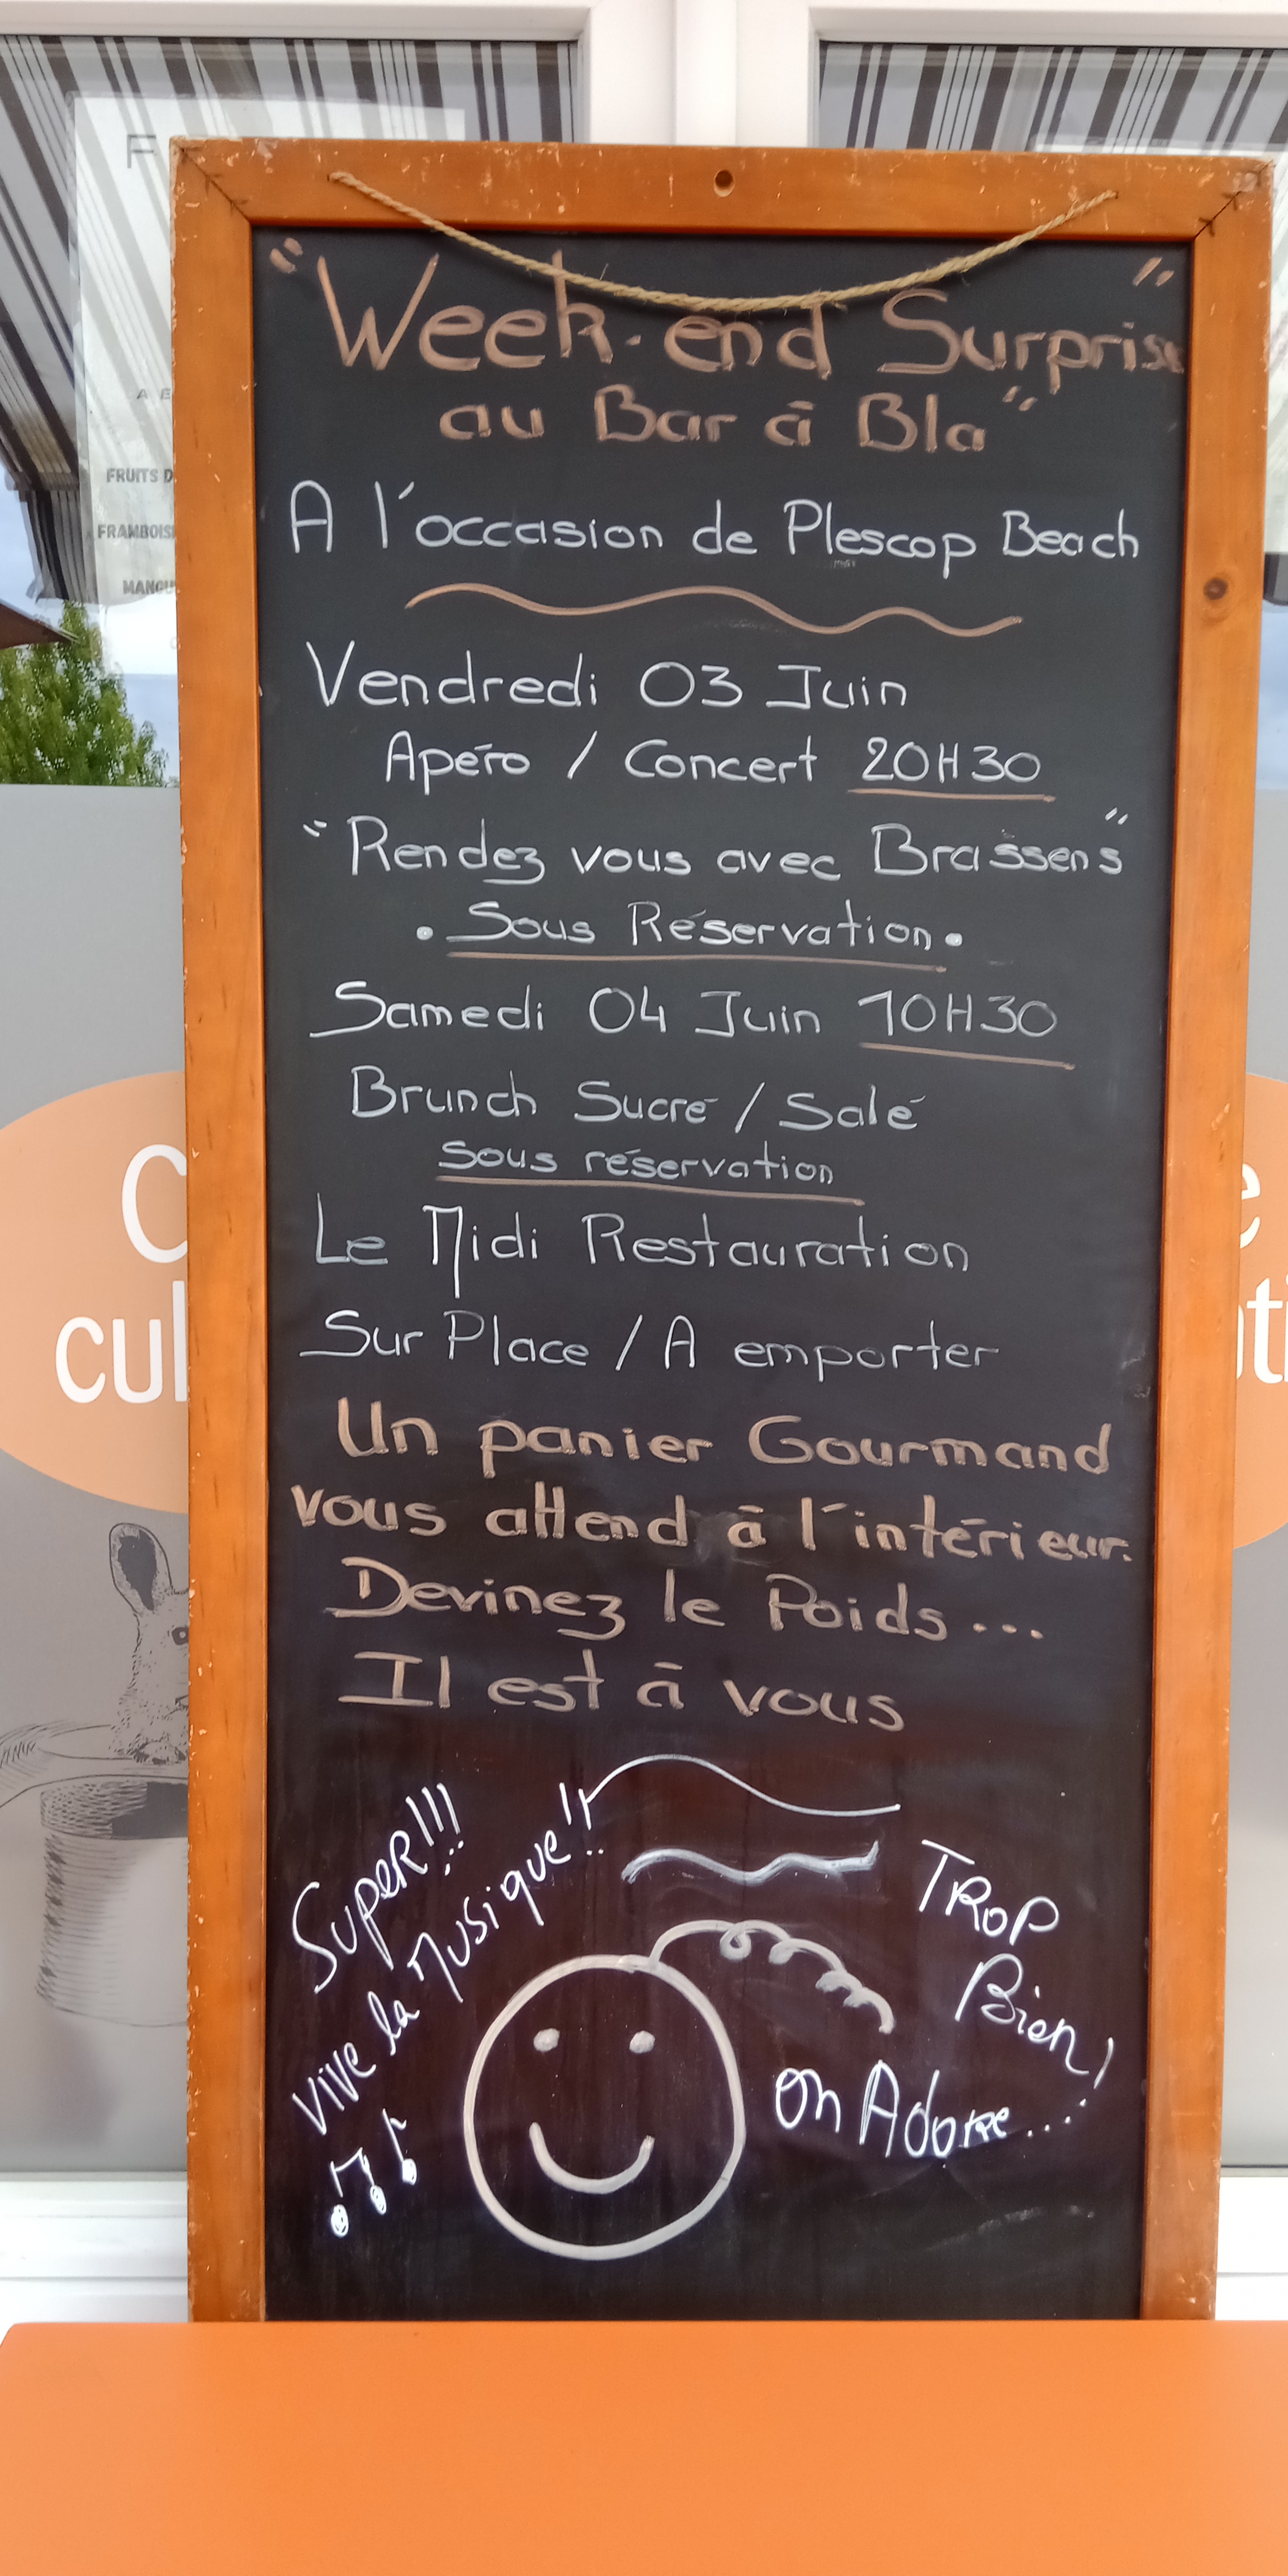 F
A E
FRUITS D
FRAMBOIS
MANGU
"Week-end Surprise"
au Bar à Bla"
A l'occasion de Plescop Beach
Vendredi 03 Juin
Apéro / Concert 20H30
"Rendez vous avec Brassens"
. Sous Réservation .
Samedi 04 Juin 10H30
Brunch Sucré / Salé
Sous réservation
Le Midi Restauration
Sur Place / A emporter
Un panier Gourmand
vous attend à l'intérieur.
Devinez le Poids...
Il est à vous
Super!!!
Vive la Musique!!
TROP
Bien!
on Adore....
C
cul
e
ti